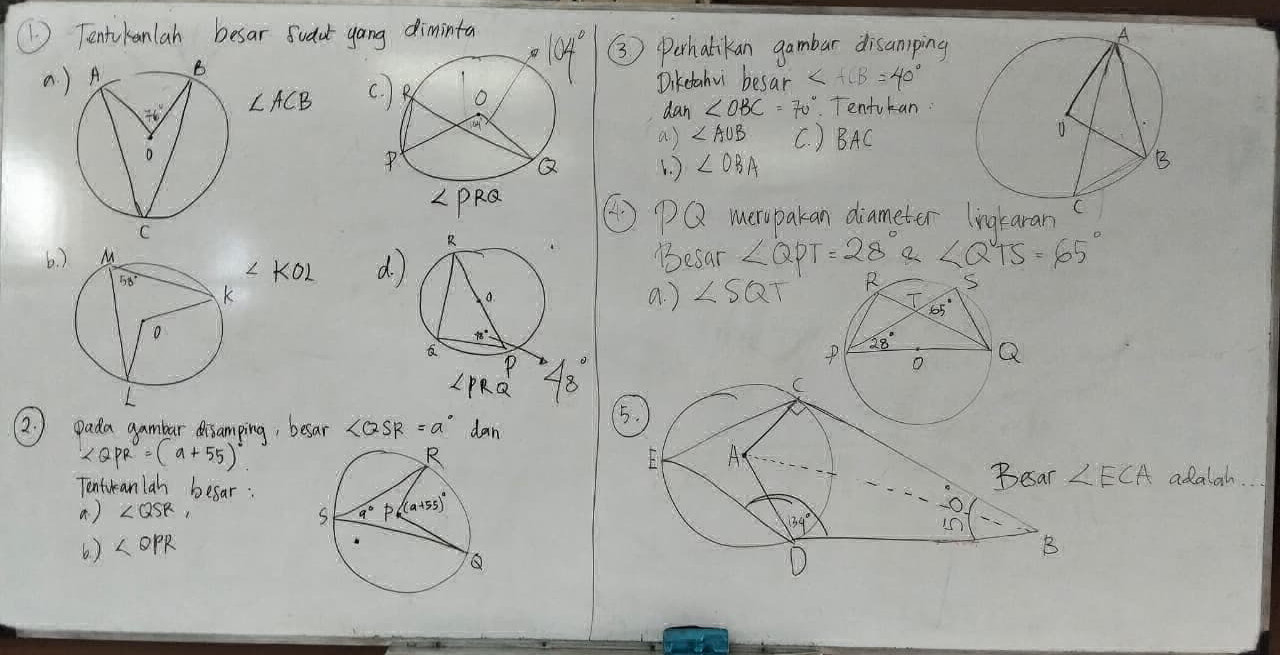 1. Tentukanlah besar sudut yang diminta
a.) A B
76°
O
C
∠ACB
c.) R O
104°
P Q
∠PRQ
b.) M
58°
K
O
L
∠KOL
d.) R
O
Q 48° P
48°
∠PRQ
2. Pada gambar disamping, besar ∠QSR = a° dan
∠QPR = (a + 55)°
Tentukanlah besar :
a.) ∠QSR,
b.) ∠QPR
R
S a° P (a+55)°
Q
3 Perhatikan gambar disamping
Diketahui besar ∠ACB = 40°
dan ∠OBC = 70°. Tentukan :
a.) ∠AOB C.) BAC
b.) ∠OBA
A
O
B
C
4. PQ merupakan diameter lingkaran
Besar ∠QPT = 28° & ∠QTS = 65°
a.) ∠SQT
R T S
65°
P 28° O Q
5.
C
E A
B
D
50°
Besar ∠ECA adalah...